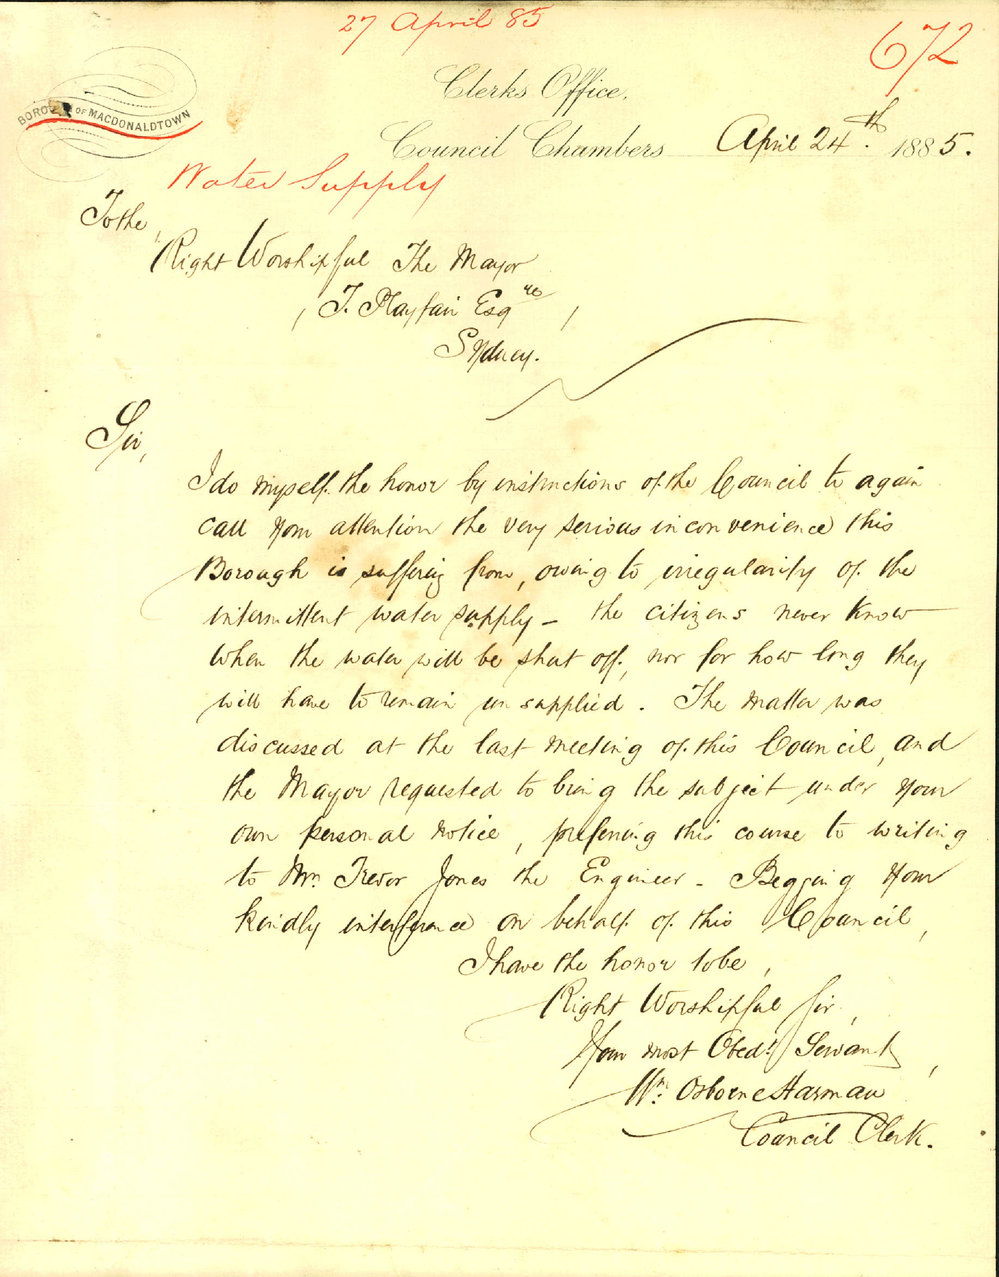 27 April 85
672
BOROUGH OF MACDONALDTOWN
Clerks Office,
Council Chambers April 24th. 1885.
Water Supply
To the,
Right Worshipful The Mayor
, T. Playfair Esqre ,
Sydney.
Sir,
I do myself the honor by instructions of the Council to again
call your attention the very serious inconvenience this
Borough is suffering from, owing to irregularity of the
intermittent water supply - the citizens never know
when the water will be shut off, nor for how long they
will have to remain unsupplied. The matter was
discussed at the last meeting of this Council, and
the Mayor requested to bring the subject under your
own personal notice, prefering this course to writing
to Mr. Trevor Jones the Engineer - Begging your
kindly interference on behalf of this Council,
I have the honor to be,
Right Worshipful Sir,
Your most Obedt Servant,
Wm. Osborne Harman
Council Clerk.